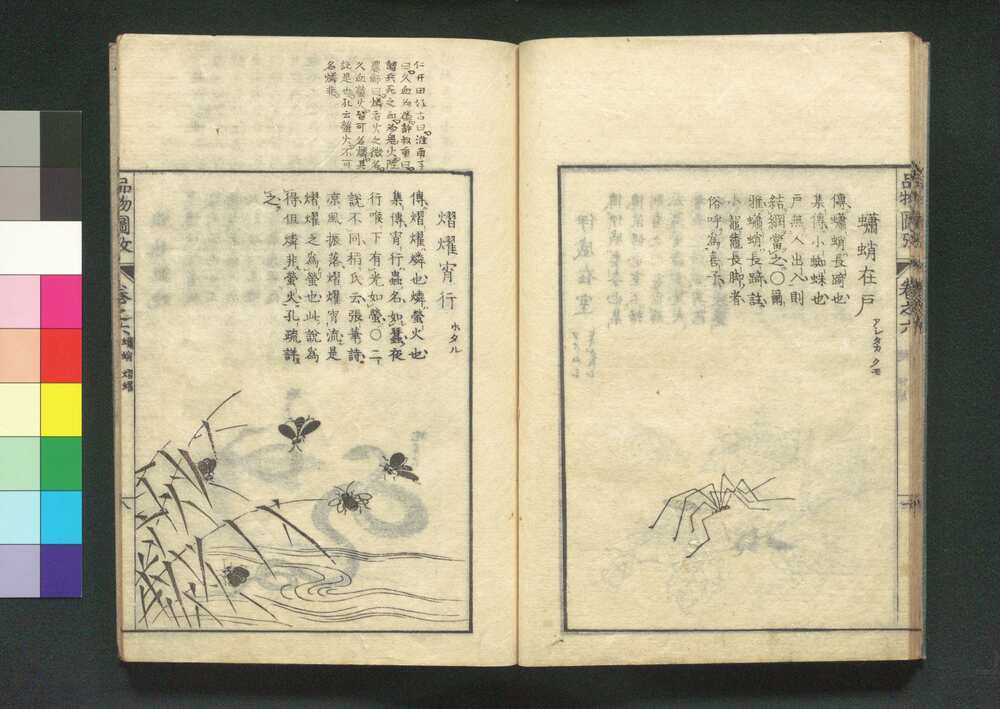 品物圖攷 卷之六
蠨蛸在戶 アシタカクモ
傳蠨蛸長踦也
集傳小蜘蛛也
戶無人出入則
結網當之〇爾
雅蠨蛸長踦註
小鼅鼄長脚者
俗呼為喜子
仁井田好古曰淮南子
曰久血為燐許叔重曰
謂兵死之血為鬼火陸
農師曰燐者火之微名
久血螢火皆可名燐其
說是也孔云螢火不可
名燐非
熠燿宵行 ホタル
傳熠燿燐也燐螢火也
集傳宵行蟲名如蠶夜
行喉下有光如螢〇二
說不同稻氏云張華詩
凉風振落熠燿宵流是
熠燿之為螢也此說為
得但燐非螢火孔疏詳
之
品物圖攷 卷之六 蠨蛸 熠燿 六